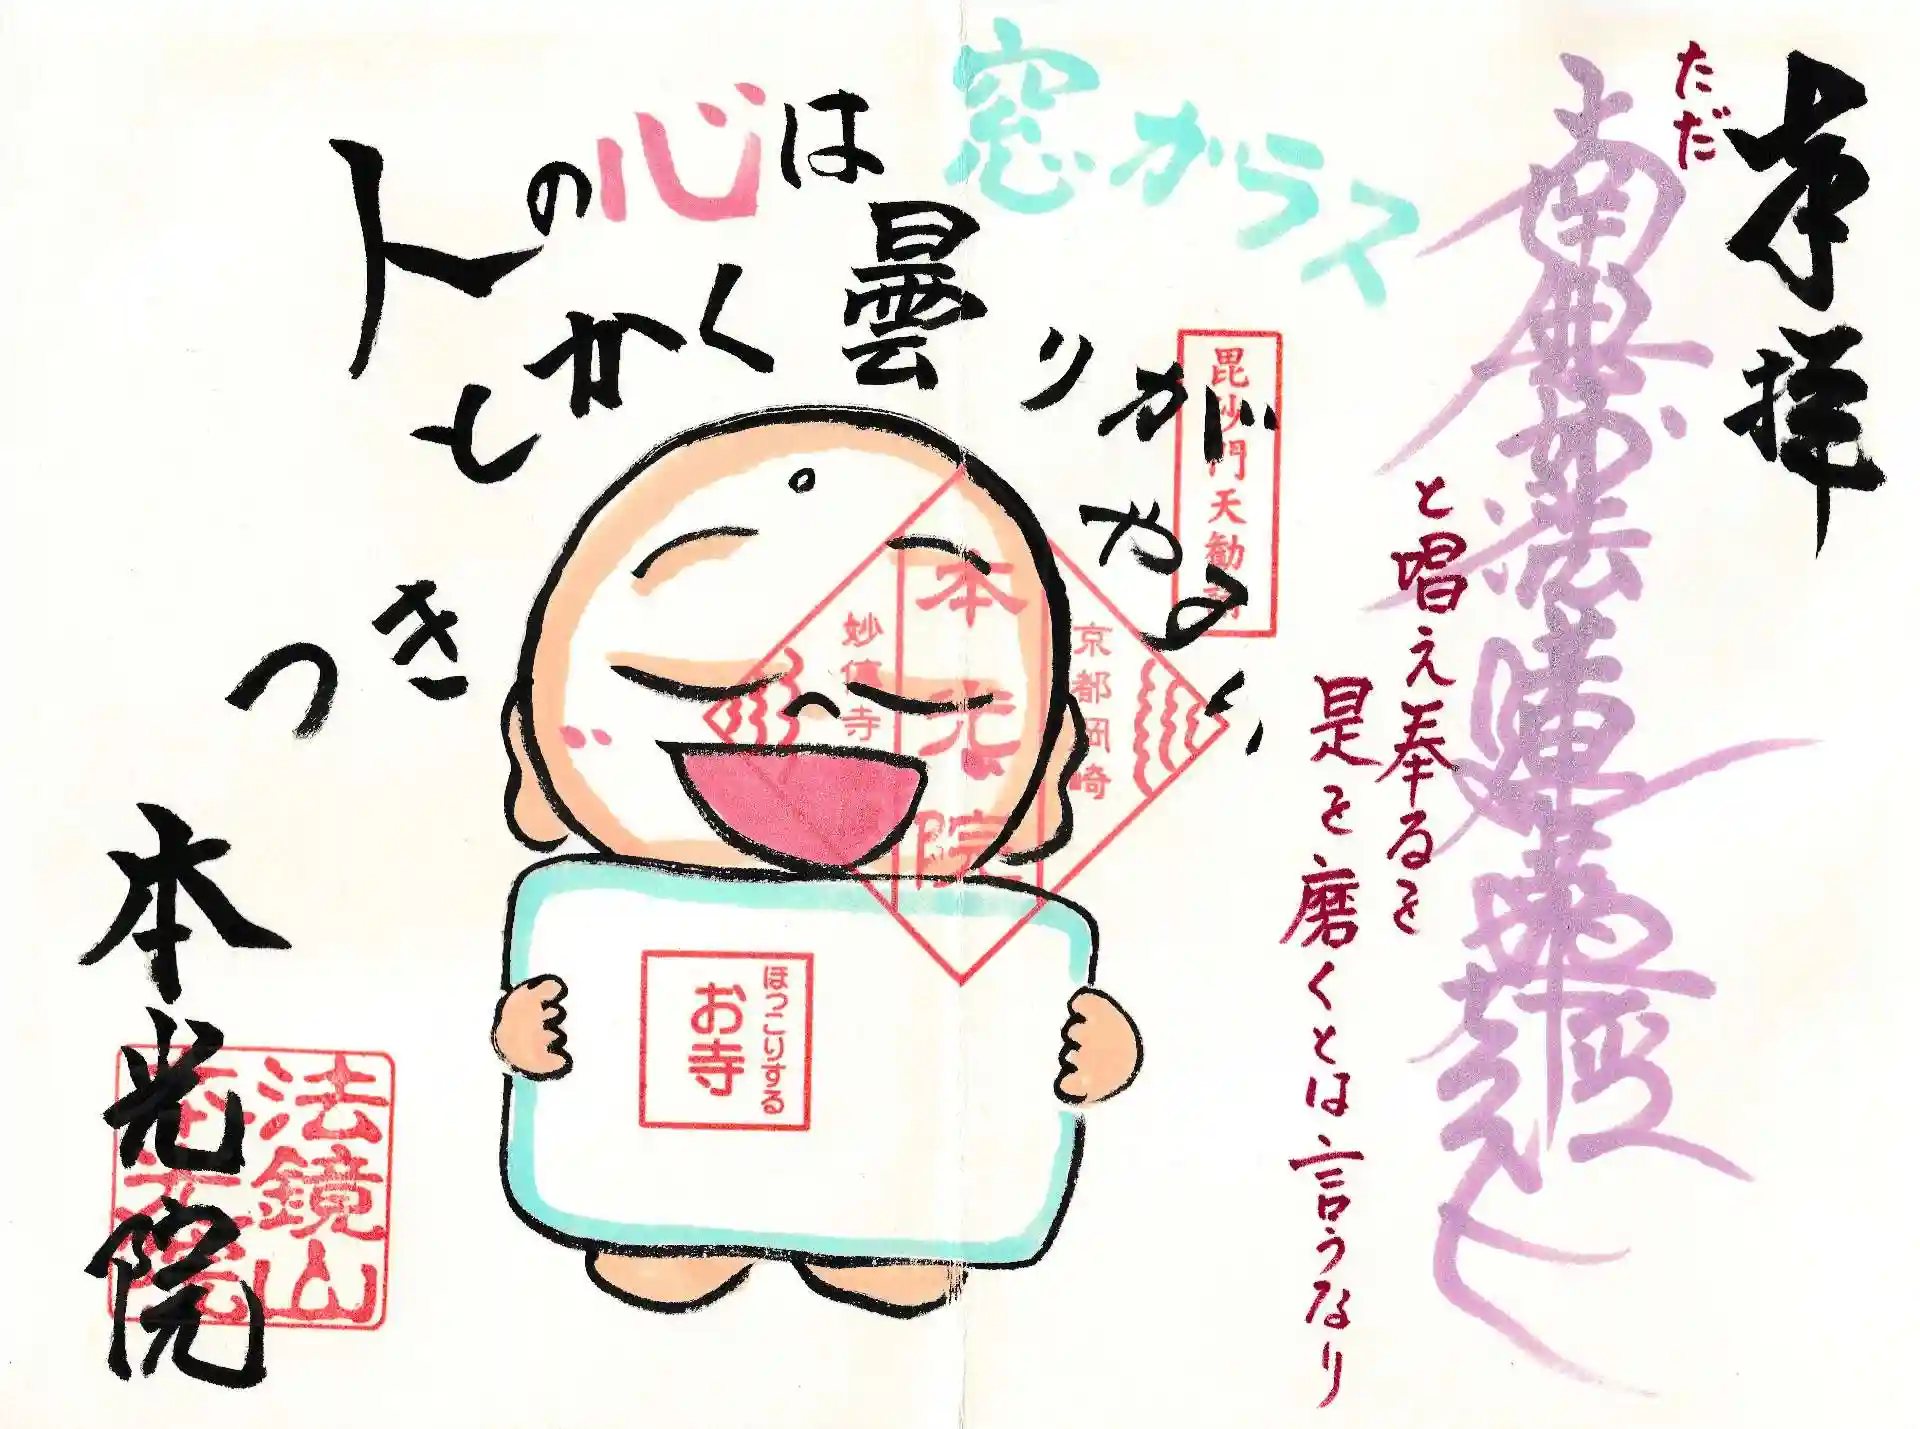 奉拝
ただ
南無妙法蓮華経
と唱え奉るを
是を磨くとは言うなり
人の心は窓ガラス
とかく曇りが
つきやすい
毘沙門天勧請
京都岡崎
本光院
妙傳寺
ほっこりする
お寺
本光院
法鏡山